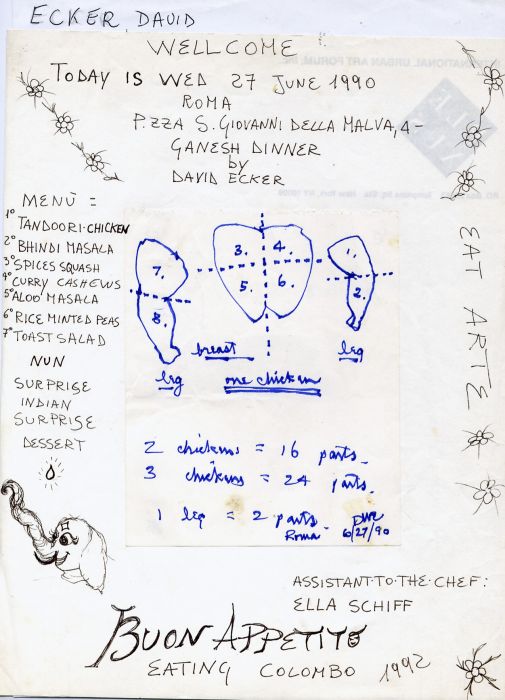 ECKER DAVID
WELLCOME
TODAY IS WED 27 JUNE 1990
ROMA
P.ZZA S. GIOVANNI DELLA MALVA, 4-
GANESH DINNER
by
DAVID ECKER
MENÙ =
1° TANDOORI·CHICKEN
2° BHINDI MASALA
3° SPICES SQUASH
4° CURRY CASHEWS
5° ALOO MASALA
6° RICE MINTED PEAS
7° TOAST SALAD
NUN
SURPRISE
INDIAN
SURPRISE
DESSERT
7.
8.
leg
3. 4.
5. 6.
breast
one chicken
1.
2.
leg
2 chickens = 16 parts.
3 chickens = 24 parts.
1 leg = 2 parts.
Roma
DWE
6/27/90
EAT ARTE
ASSISTANT·TO·THE·CHEF:
ELLA SCHIFF
BUON APPETITO
EATING COLOMBO 1992